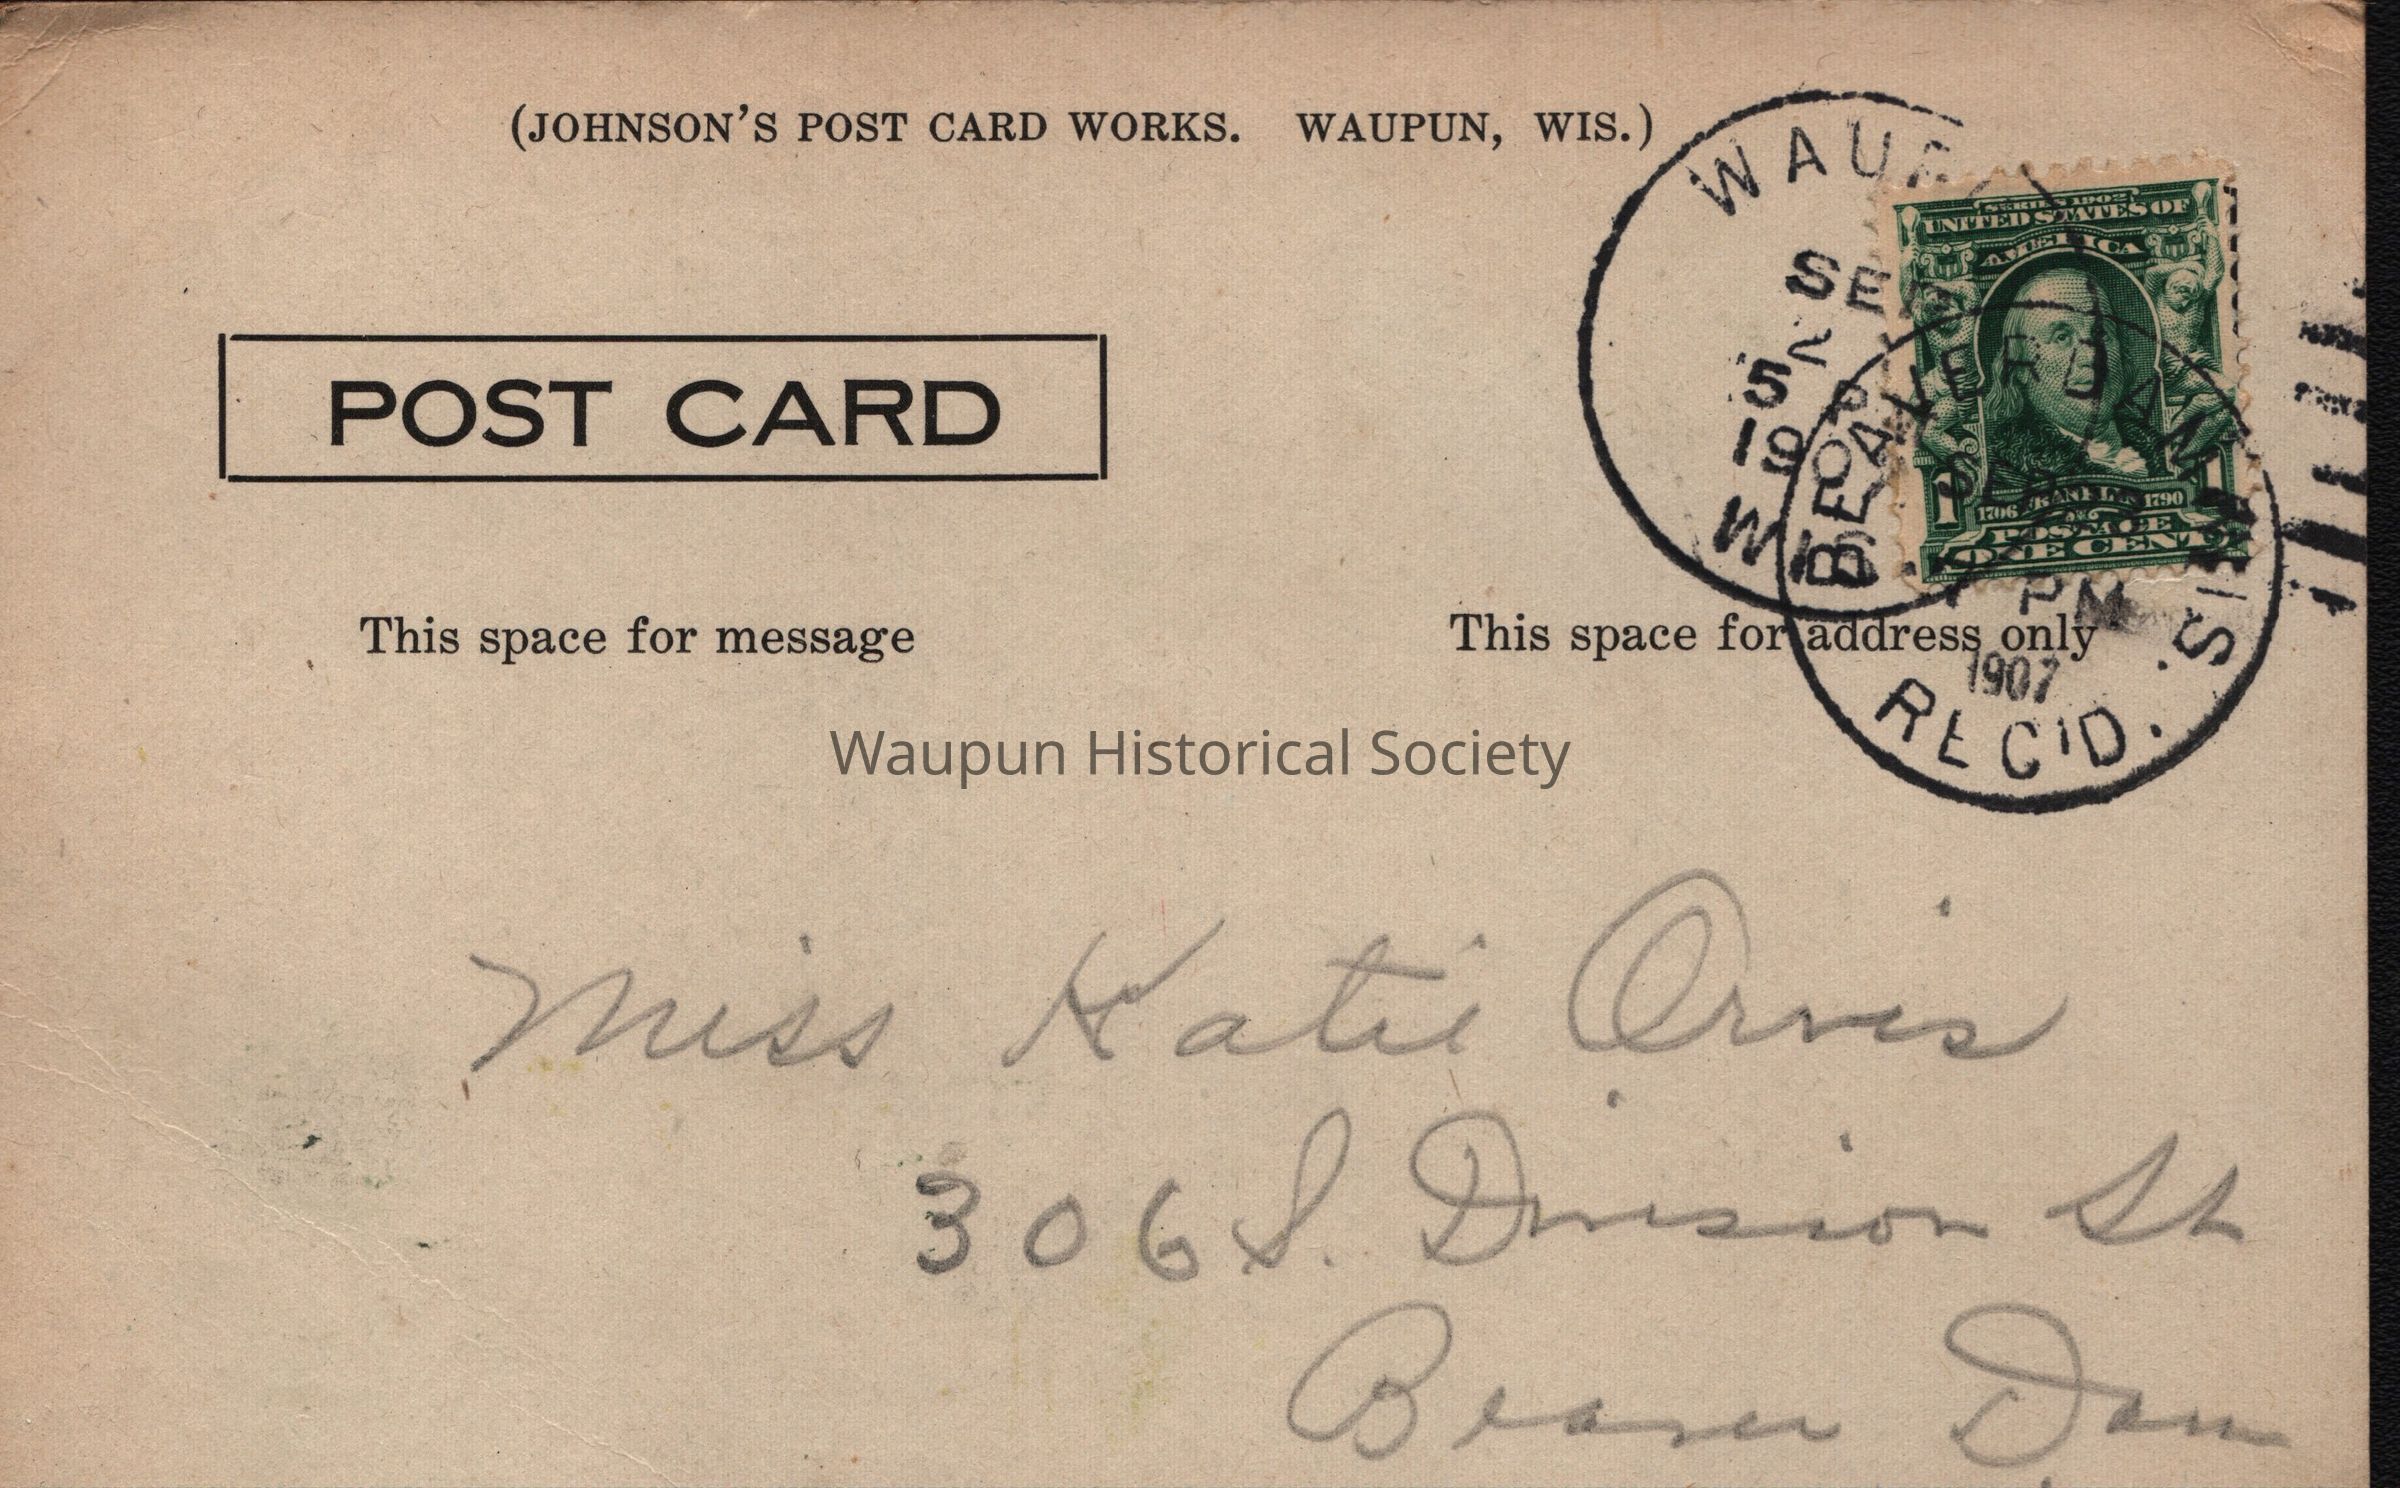 (JOHNSON'S POST CARD WORKS. WAUPUN, WIS.)
POST CARD
This space for message
This space for address only
WAUP
SEP
2
5 P
190
WIS.
SERIES 1902
UNITED STATES OF
AMERICA
FRANKLIN
1706 1790
POSTAGE
1 1
ONE CENT
BEAVER DAM
WIS.
SEP
PM
1907
REC'D.
Waupun Historical Society
Miss Katie Orvis
306 S. Division St
Beaver Dam